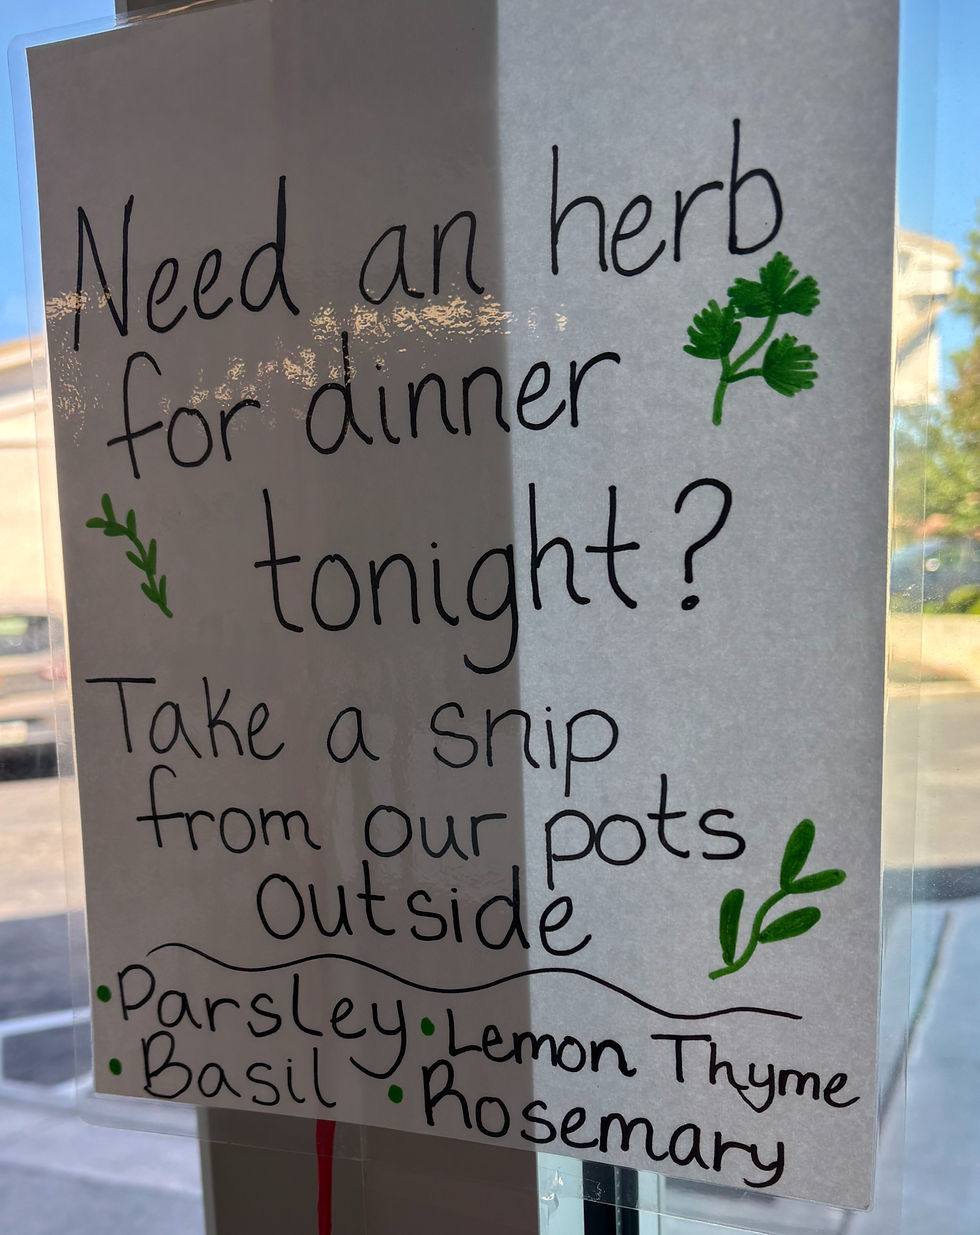 Need an herb
for dinner
tonight?
Take a snip
from our pots
outside
• Parsley • Lemon Thyme
• Basil • Rosemary